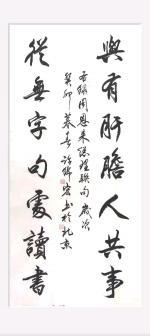 與有肝膽人共事
從無字句處讀書
書錄周恩來總理聯句 歲次
癸卯暮春 許師宏書於北京